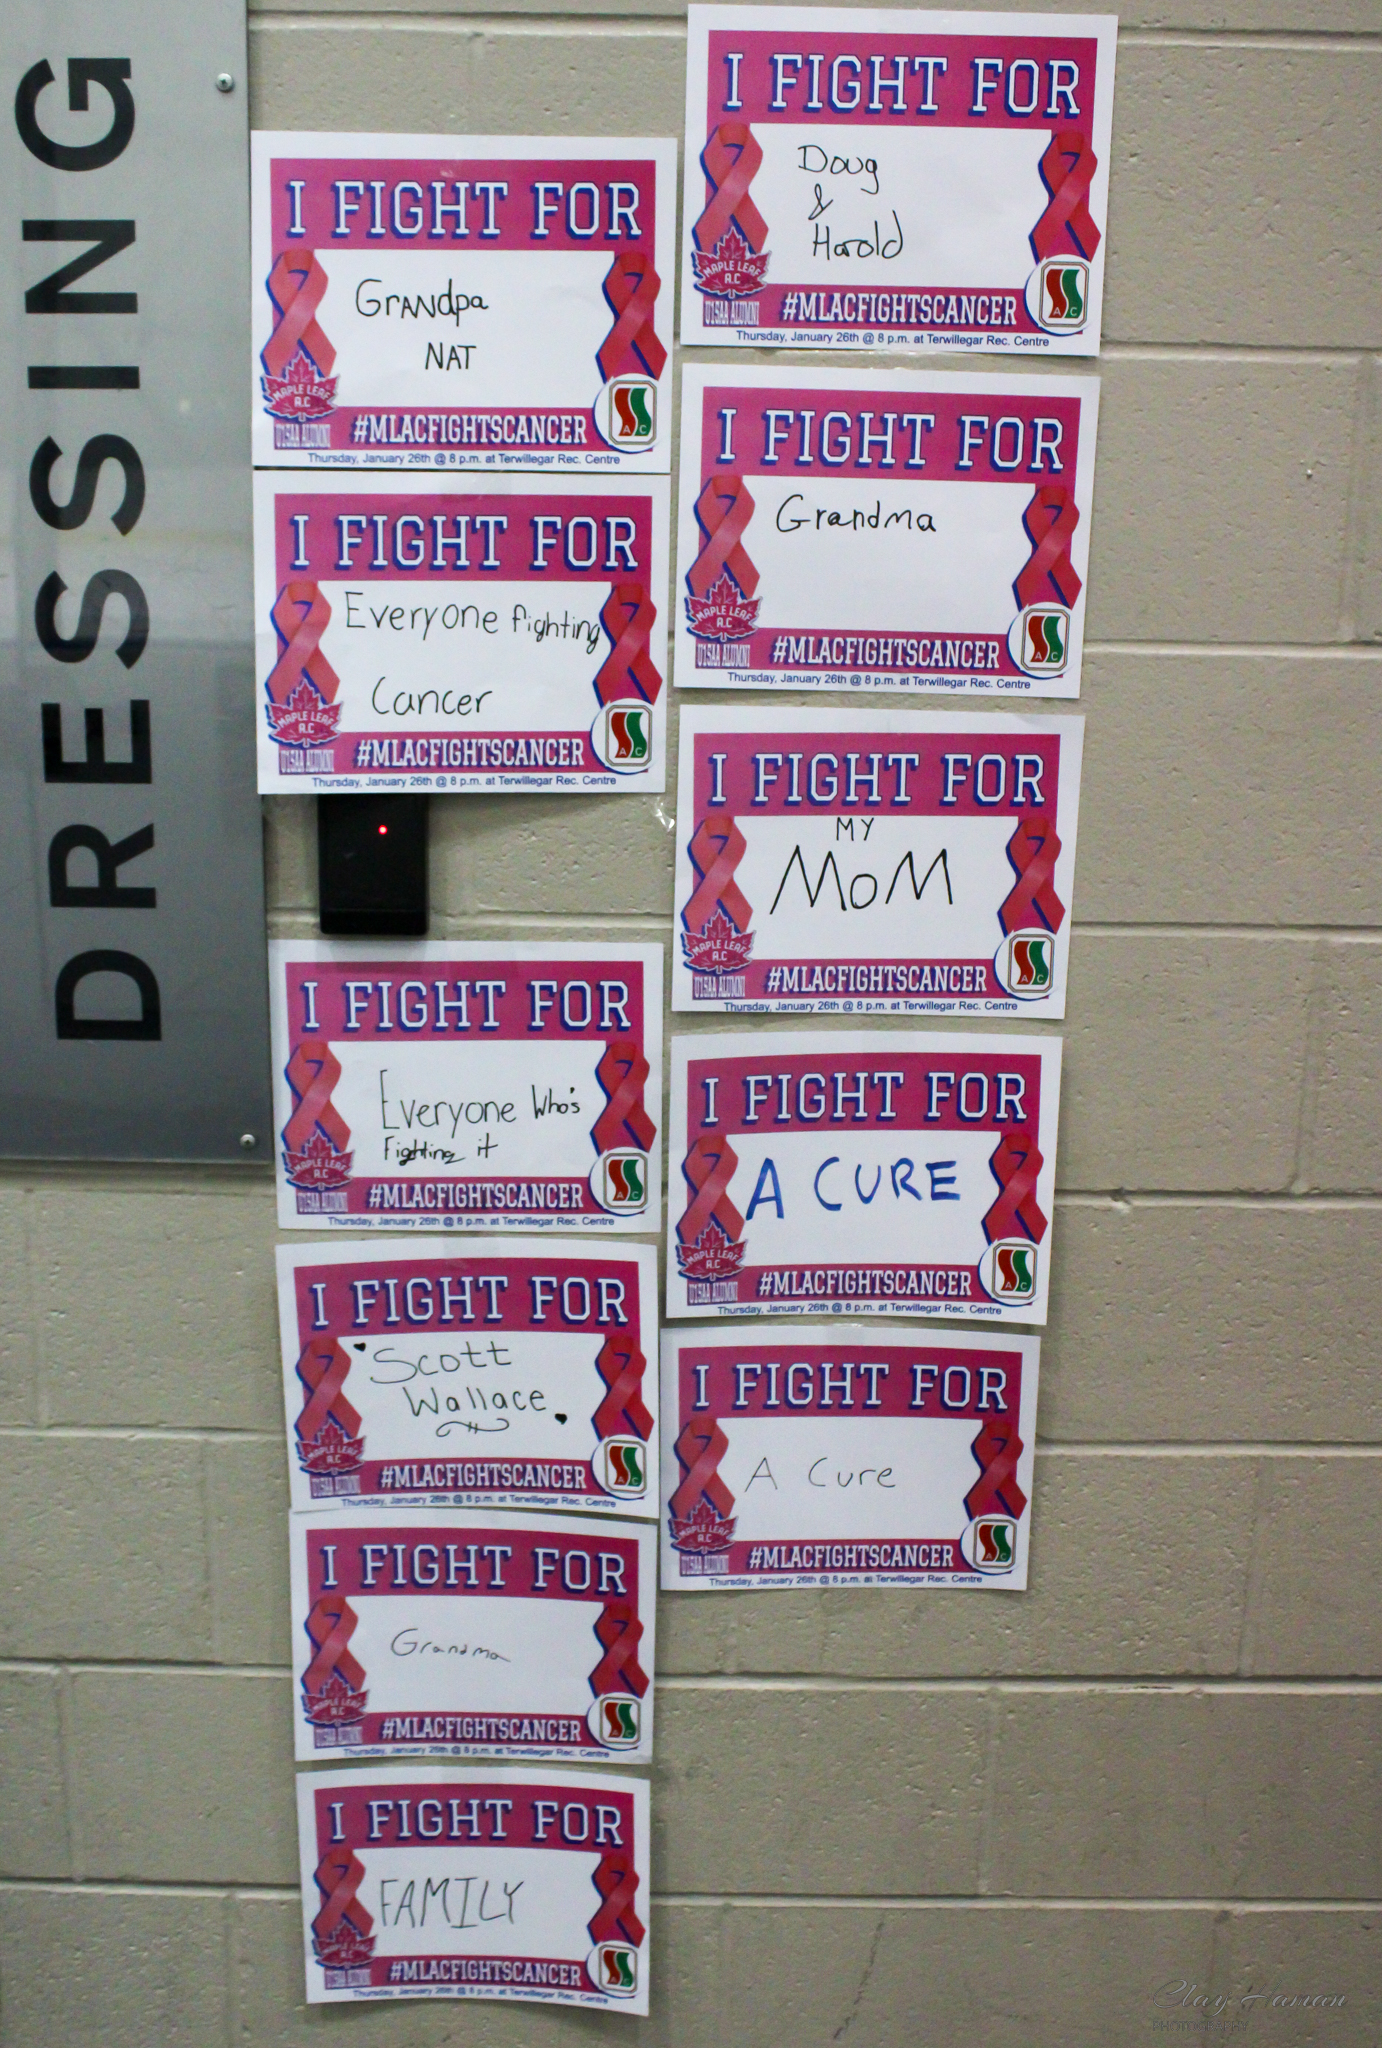 DRESSING
I FIGHT FOR
Grandpa
NAT
MAPLE LEAF
A.C
U15AA ALUMNI
#MLACFIGHTSCANCER
A C
Thursday, January 26th @ 8 p.m. at Terwillegar Rec. Centre
I FIGHT FOR
Everyone fighting
Cancer
MAPLE LEAF
A.C
U15AA ALUMNI
#MLACFIGHTSCANCER
A C
Thursday, January 26th @ 8 p.m. at Terwillegar Rec. Centre
I FIGHT FOR
Everyone Who's
Fighting it
MAPLE LEAF
A.C
U15AA ALUMNI
#MLACFIGHTSCANCER
A C
Thursday, January 26th @ 8 p.m. at Terwillegar Rec. Centre
I FIGHT FOR
Scott
Wallace
MAPLE LEAF
A.C
U15AA ALUMNI
#MLACFIGHTSCANCER
A C
Thursday, January 26th @ 8 p.m. at Terwillegar Rec. Centre
I FIGHT FOR
Grandma
MAPLE LEAF
A.C
U15AA ALUMNI
#MLACFIGHTSCANCER
A C
Thursday, January 26th @ 8 p.m. at Terwillegar Rec. Centre
I FIGHT FOR
FAMILY
MAPLE LEAF
A.C
U15AA ALUMNI
#MLACFIGHTSCANCER
A C
Thursday, January 26th @ 8 p.m. at Terwillegar Rec. Centre
I FIGHT FOR
Doug
&
Harold
MAPLE LEAF
A.C
U15AA ALUMNI
#MLACFIGHTSCANCER
A C
Thursday, January 26th @ 8 p.m. at Terwillegar Rec. Centre
I FIGHT FOR
Grandma
MAPLE LEAF
A.C
U15AA ALUMNI
#MLACFIGHTSCANCER
A C
Thursday, January 26th @ 8 p.m. at Terwillegar Rec. Centre
I FIGHT FOR
MY
MOM
MAPLE LEAF
A.C
U15AA ALUMNI
#MLACFIGHTSCANCER
A C
Thursday, January 26th @ 8 p.m. at Terwillegar Rec. Centre
I FIGHT FOR
A CURE
MAPLE LEAF
A.C
U15AA ALUMNI
#MLACFIGHTSCANCER
A C
Thursday, January 26th @ 8 p.m. at Terwillegar Rec. Centre
I FIGHT FOR
A Cure
MAPLE LEAF
A.C
U15AA ALUMNI
#MLACFIGHTSCANCER
A C
Thursday, January 26th @ 8 p.m. at Terwillegar Rec. Centre
Clay Haman
PHOTOGRAPHY